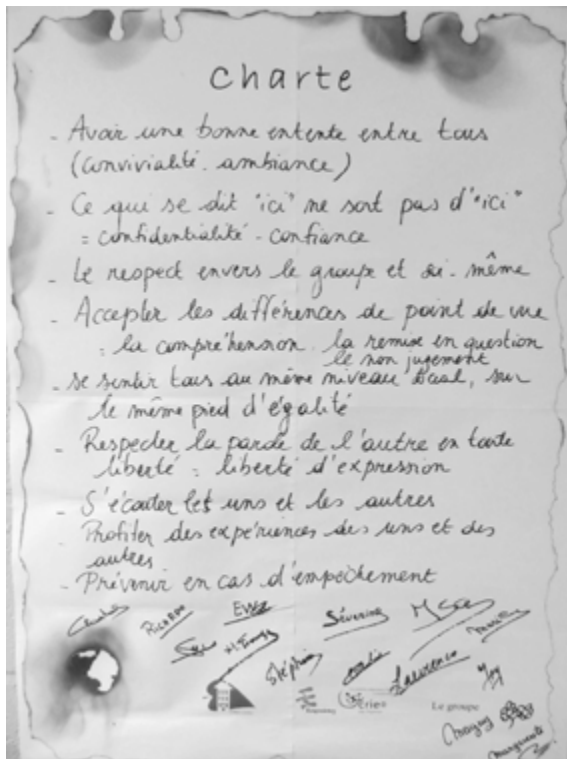 Charte
- Avoir une bonne entente entre tous
(convivialité - ambiance)
- Ce qui se dit "ici" ne sort pas d'"ici"
= confidentialité - confiance
- Le respect envers le groupe et soi-même
- Accepter les différences de point de vue
: la compréhension la remise en question
le non jugement
- se sentir tous au même niveau social, sur
le même pied d'égalité
- Respecter la parole de l'autre en toute
liberté = liberté d'expression
- S'écouter les uns et les autres
- Profiter des expériences des uns et des
autres
- Prévenir en cas d'empêchement
RICARDO
Séverine
Stéphie
Laurence
Le groupe